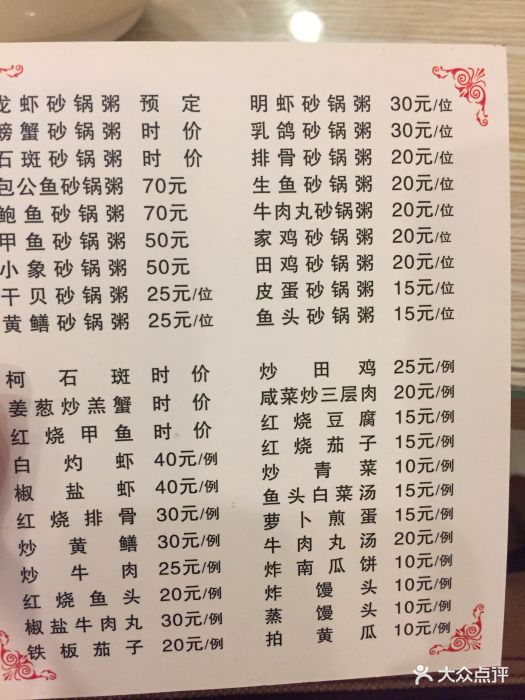 龙虾砂锅粥 预定
螃蟹砂锅粥 时价
石斑砂锅粥 时价
包公鱼砂锅粥 70元
鲍鱼砂锅粥 70元
甲鱼砂锅粥 50元
小象砂锅粥 50元
干贝砂锅粥 25元/位
黄鳝砂锅粥 25元/位
明虾砂锅粥 30元/位
乳鸽砂锅粥 30元/位
排骨砂锅粥 20元/位
生鱼砂锅粥 20元/位
牛肉丸砂锅粥 20元/位
家鸡砂锅粥 20元/位
田鸡砂锅粥 20元/位
皮蛋砂锅粥 15元/位
鱼头砂锅粥 15元/位
柯石斑 时价
姜葱炒羔蟹 时价
红烧甲鱼 时价
白灼虾 40元/例
椒盐虾 40元/例
红烧排骨 30元/例
炒黄鳝 30元/例
炒牛肉 25元/例
红烧鱼头 20元/例
椒盐牛肉丸 30元/例
铁板茄子 20元/例
炒田鸡 25元/例
咸菜炒三层肉 20元/例
红烧豆腐 15元/例
红烧茄子 15元/例
炒青菜 10元/例
鱼头白菜汤 15元/例
萝卜煎蛋 15元/例
牛肉丸汤 20元/例
炸南瓜饼 10元/例
炸馒头 10元/例
蒸馒头 10元/例
拍黄瓜 10元/例
大众点评